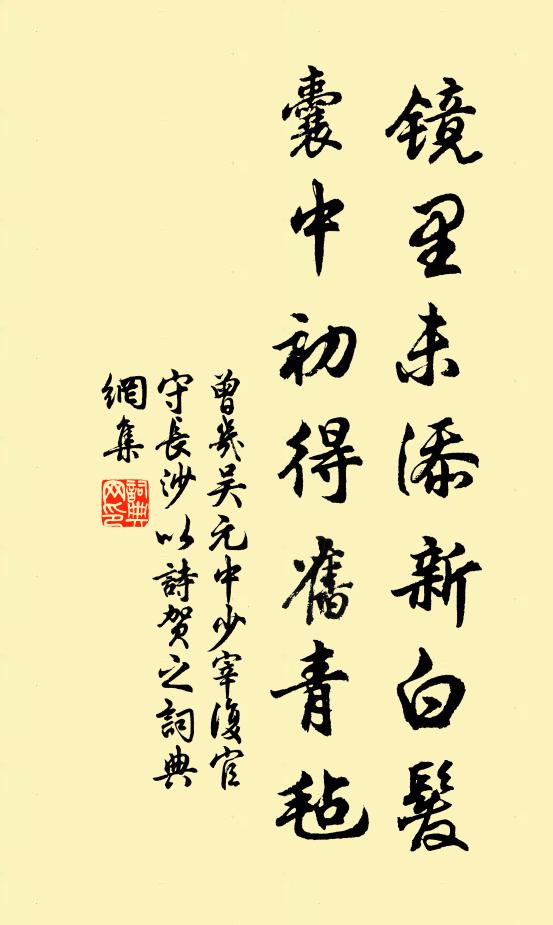 鏡里未添新白髮
囊中初得舊青氈
曾幾吴元中少宰復官
守長沙以詩賀之詞典
網集
詞典
网印